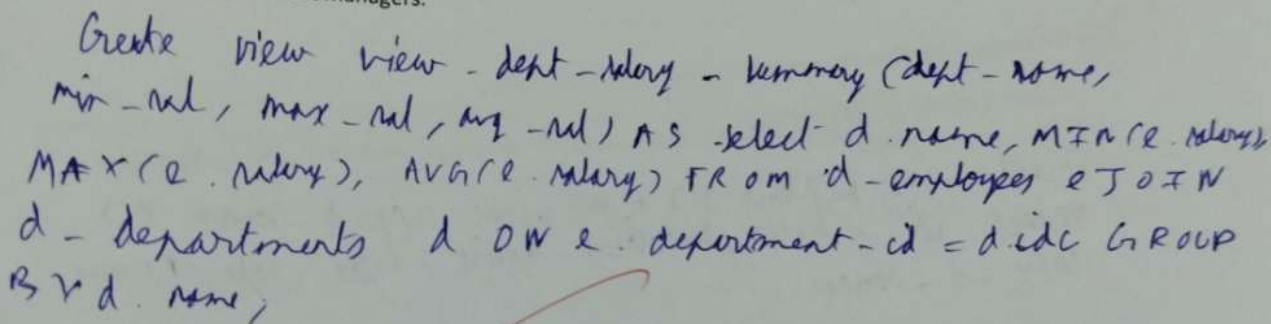 managers.
Create view view - dept - salary - summary (dept - name,
min - sal, max - sal, avg - sal) AS select d. name, MIN (e. salary),
MAX (e. salary), AVG (e. salary) FROM d - employees e JOIN
d - departments d ON e. department - id = d.idc GROUP
BY d. name;